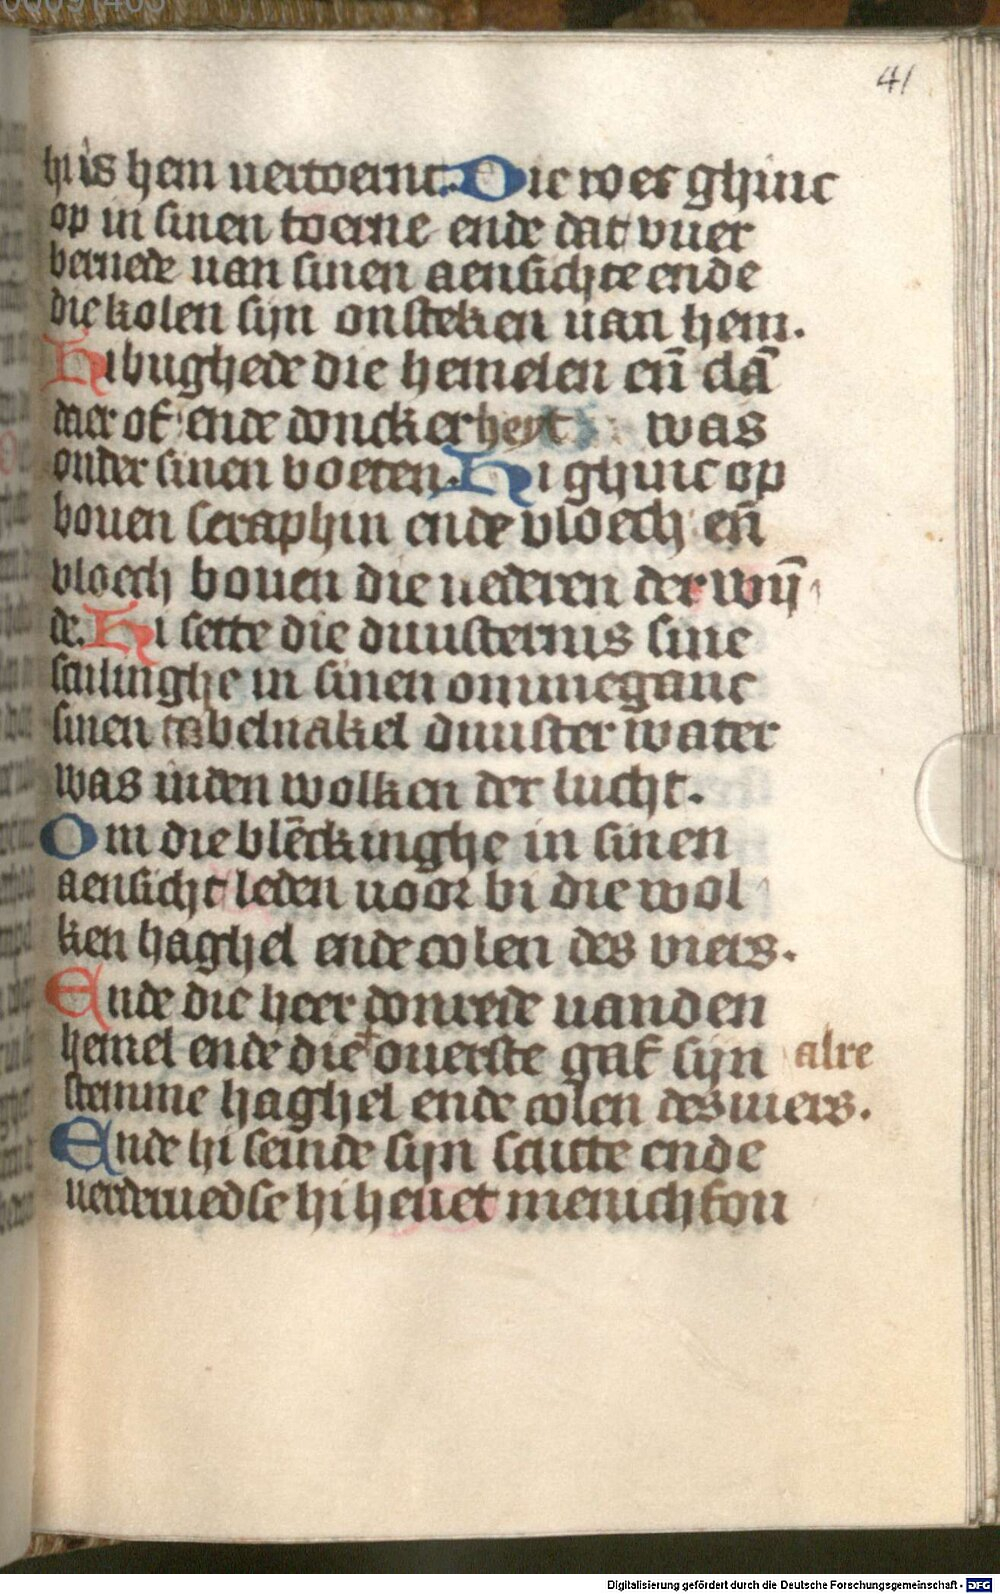 41
hi is hem uertoernt. Die roec ghinc
op in sinen toerne ende dat vuer
bernede uan sinen aensichte ende
die kolen sijn onsteken uan hem.
Hi bughede die hemelen eñ clā
mer of ende donckerheyt was
onder sinen voeten. Hi ghinc op
bouen seraphin ende vloech eñ
vloech bouen die uederen der wī
de. Hi sette die duusternis sine
sculinghe in sinen ommeganc
sinen tabelnakel duuster water
was inden wolken der lucht.
Om die blēckinghe in sinen
aensicht leden uoor bi die wol
ken haghel ende colen des viers.
Ende die heer donrede uanden
hemel ende die ouerste gaf sijn alre
stemme haghel ende colen des uiers.
Ende hi seinde sijn scutte ende
uerderuedse hi heuet menichfou
Digitalisierung gefördert durch die Deutsche Forschungsgemeinschaft - DFG